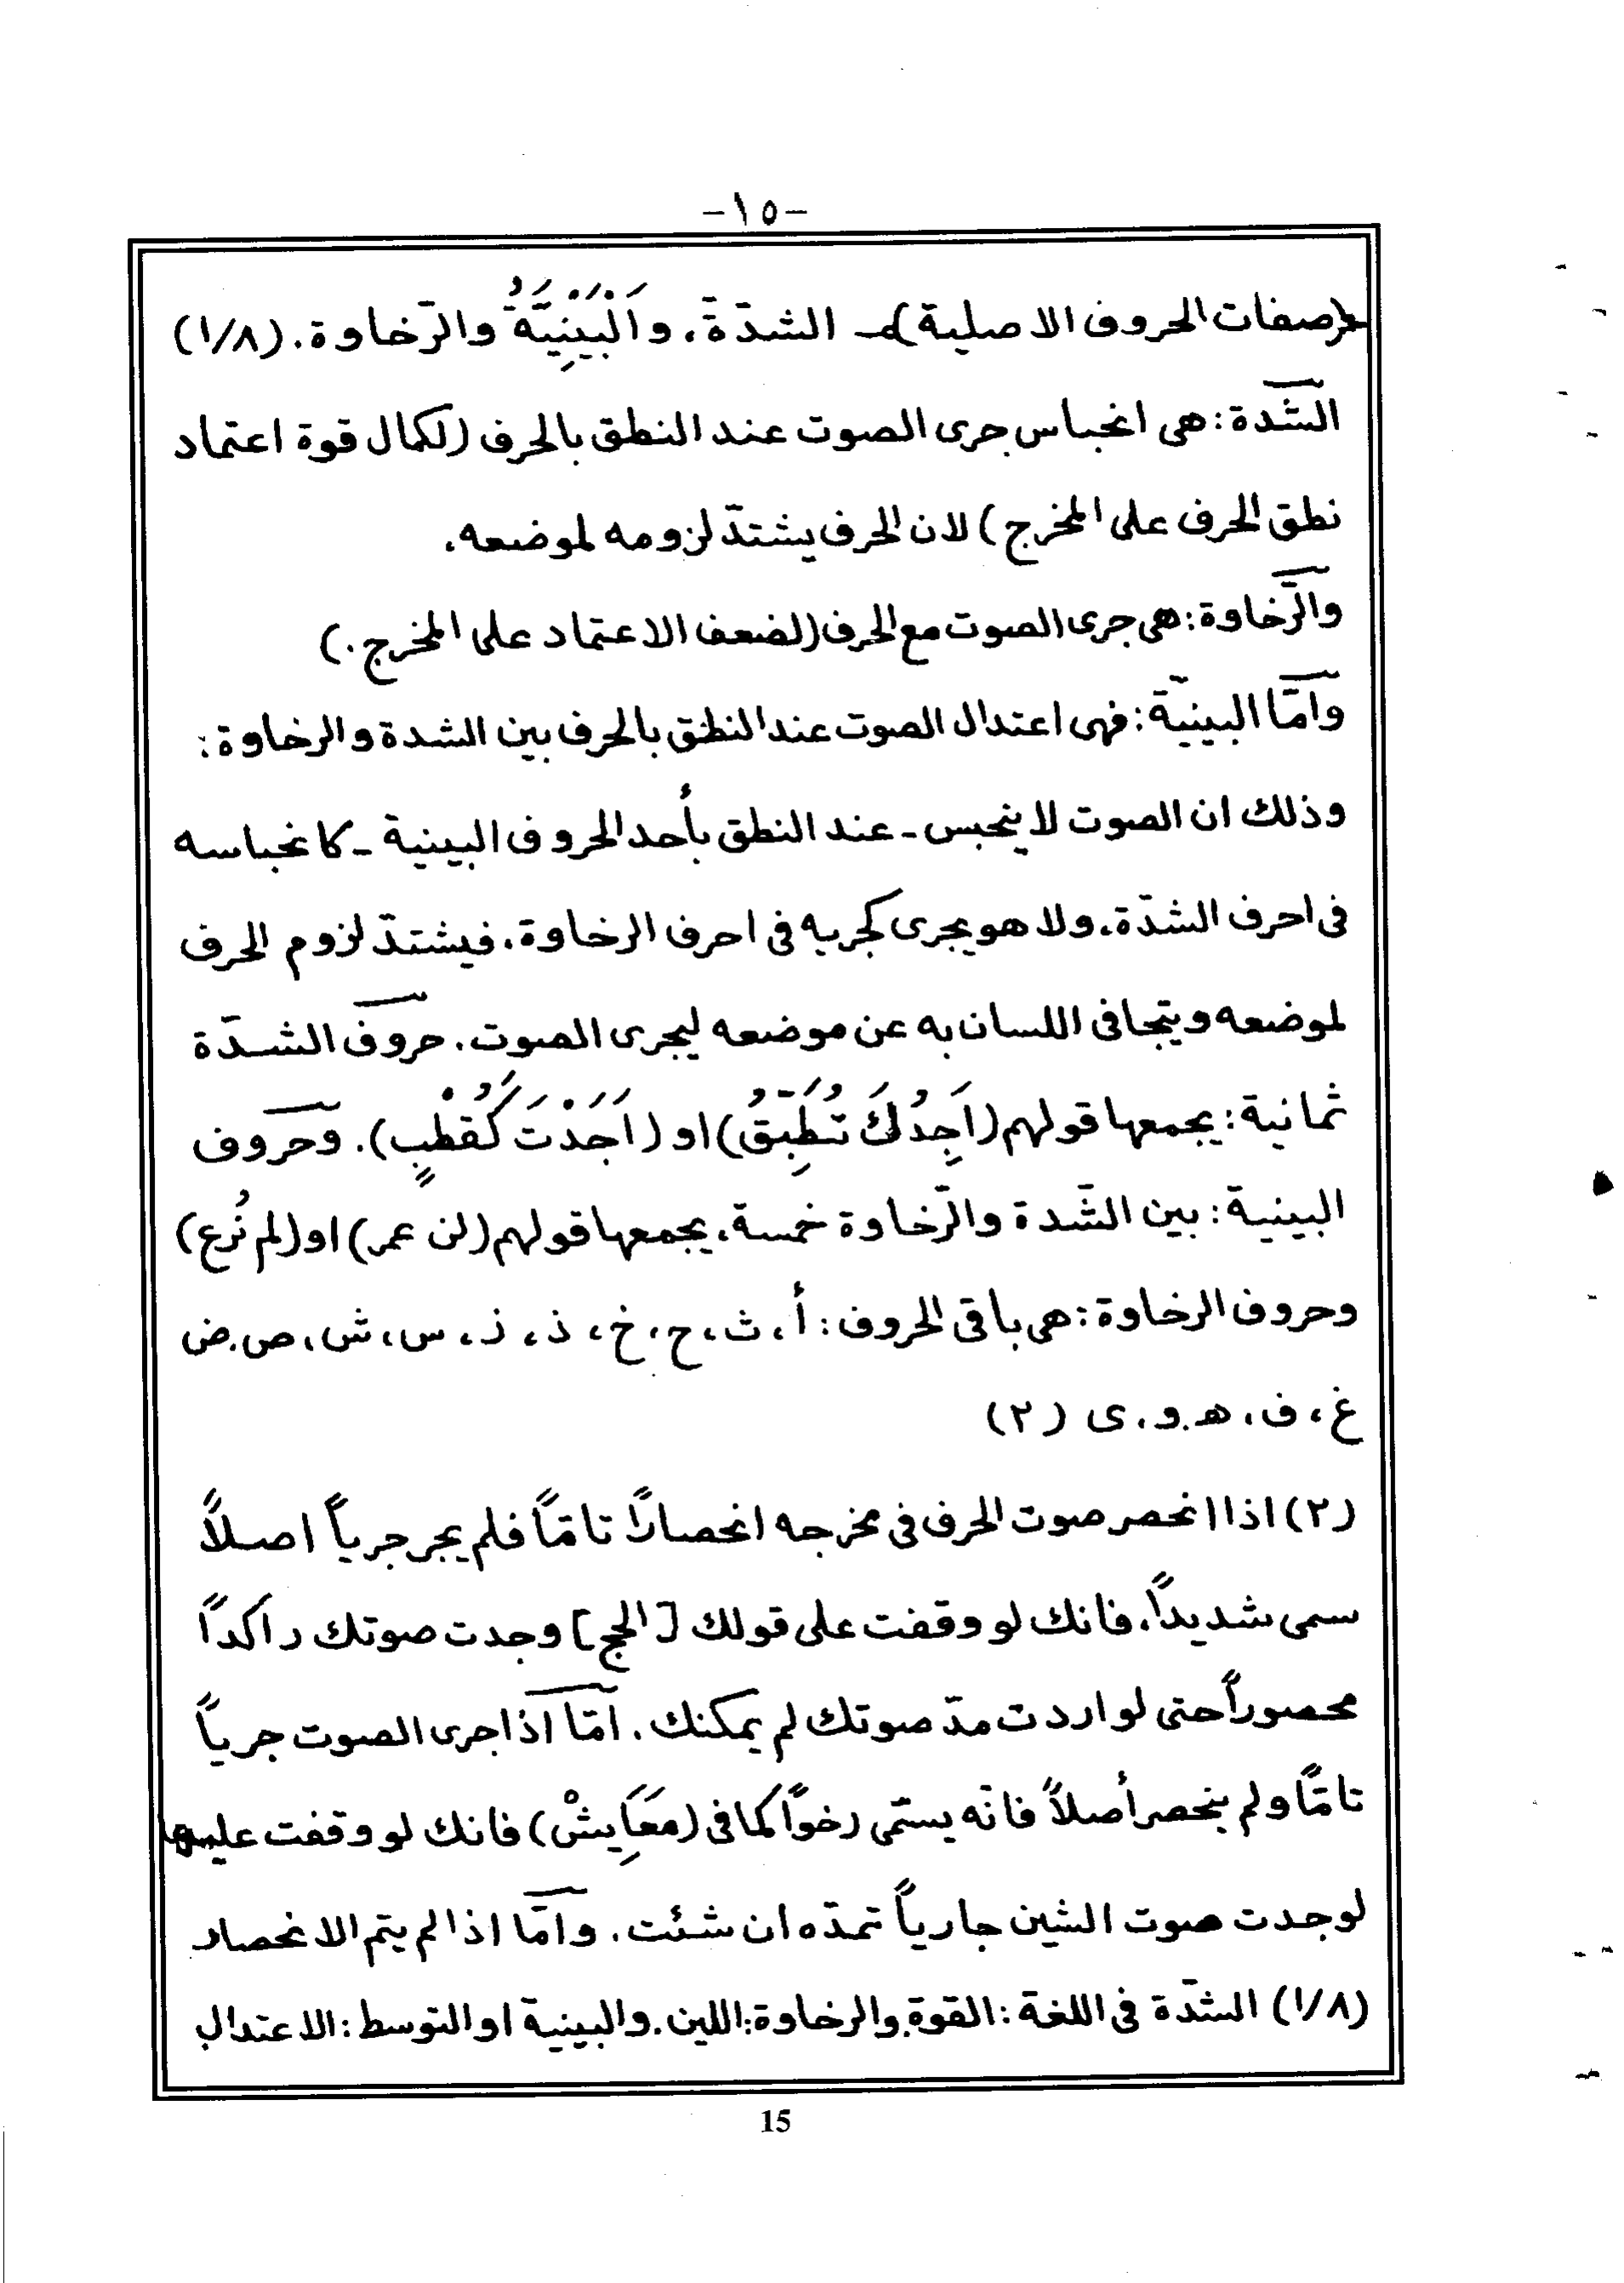 -١٥-
(صفات الحروف الاصلية) الشدّة، وَاَلْبَيْنِيَّةُ والرّخاوة. (١/٨)
الشّدة: هى انحباس جرى الصوت عند النطق بالحرف (لكمال قوة اعتماد
نطق الحرف على المخرج) لان الحرف يشتدّ لزومه لموضعه.
والرّخاوة: هى جرى الصوت مع الحرف (لضعف الاعتماد على المخرج.)
وامّا البينيّة: فهى اعتدال الصوت عند النطق بالحرف بين الشدة والرخاوة:
وذلك ان الصوت لا ينحبس - عند النطق بأحد الحروف البينية - كانحباسه
فى احرف الشدّة، ولا هو يجرى كجريه فى احرف الرخاوة، فيشتدّ لزوم الحرف
لموضعه ويتجافى اللسان به عن موضعه ليجرى الصوت. حروف الشدّة
ثمانية: يجمعها قولهم (اَجِدُكَ تُطَبِّقُ) او (اَجَدْتَ كَقُطْبٍ). وحروف
البينية: بين الشّدة والرّخاوة خمسة، يجمعها قولهم (لن عمر) او (لم نُرع)
وحروف الرخاوة: هى باقى الحروف: أ، ث، ح، خ، ذ، ز، س، ش، ص. ض
غ، ف، هـ. و. ى (٢)
(٢) اذا انحصر صوت الحرف فى مخرجه انحصاراً تامّاً فلم يجر جرياً اصلاً
سمى شديداً، فانك لو وقفت على قولك [الحج] وجدت صوتك راكداً
محصوراً حتى لو اردت مدّ صوتك لم يمكنك. امّا اذا جرى الصوت جرياً
تامّاً ولم ينحصر أصلاً فانّه يسمّى رخواً كما فى (مَعَايِشْ) فانك لو وقفت عليها
لوجدت صوت الشين جارياً تمدّه ان شئت. وامّا اذا لم يتم الانحصار
(١/٨) الشدّة فى اللغة: القوة. والرخاوة: اللين. والبينية او التوسط: الاعتدال
15